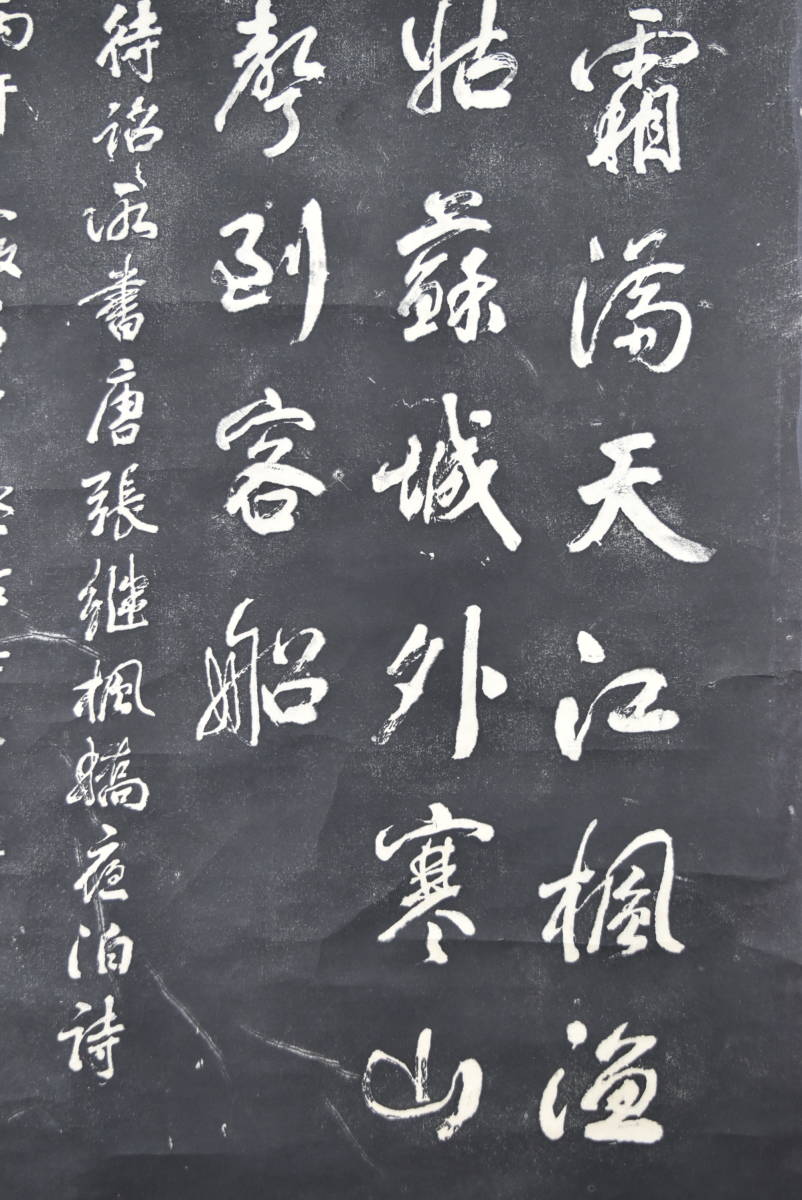 霜滿天江楓漁
姑蘇城外寒山
聲到客船
待詔
書唐張繼楓橋夜泊詩